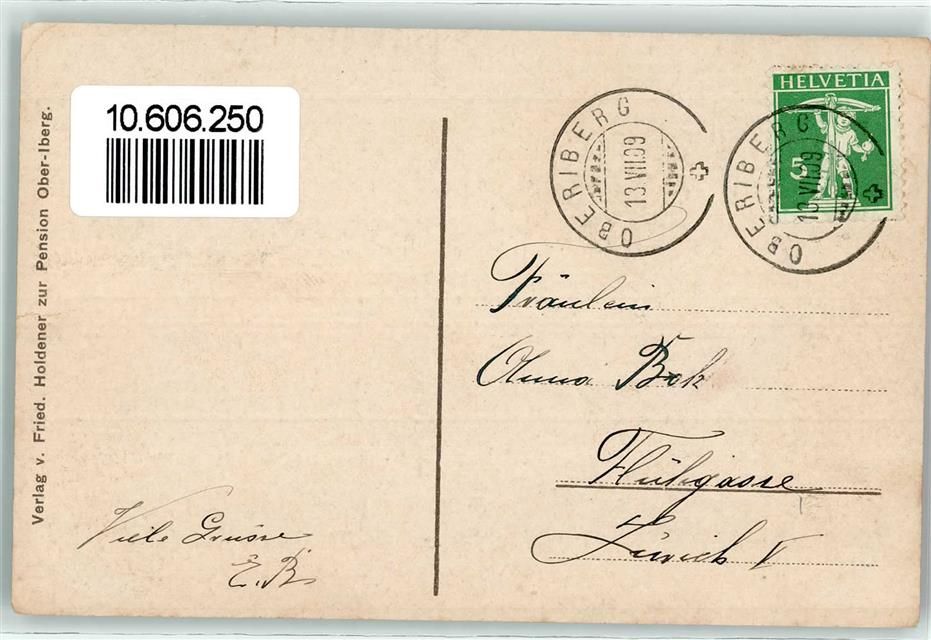 10.606.250
Verlag v. Fried. Holdener zur Pension Ober-Iberg.
HELVETIA
5
OBERIBERG
13 VII 09
OBERIBERG
13 VII 09
Fräulein
Anna Bok
Flühgasse
Zürich V
Viele Grüsse
E. B.